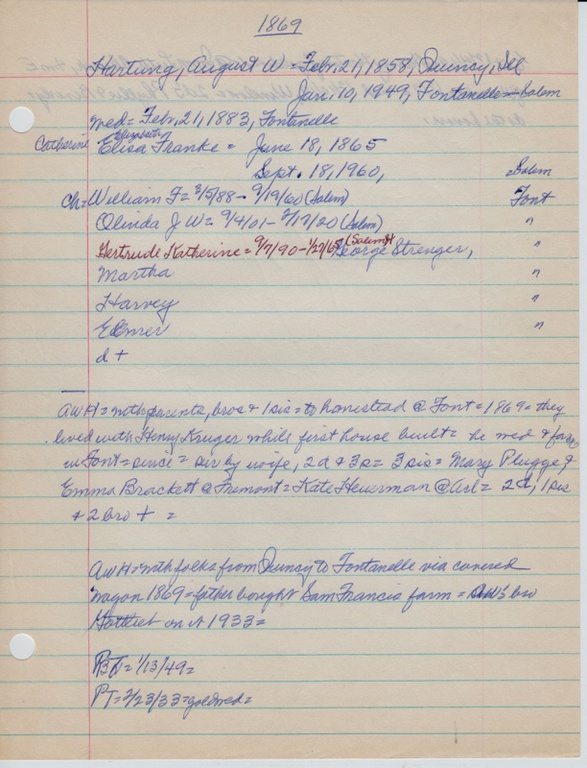 1869
Hartung, August W = Feb. 21, 1858, Quincy, Ill
Jan. 10, 1949, Fontanelle - Salem
med = Feb. 21, 1883, Fontanelle
Elizabeth
Catherine Elisa Franke = June 18, 1865
Sept. 18, 1960, = Salem
ch = William F = 3/5/88 - 9/19/60 (Salem) Font
Olinda J W = 9/4/01 - 2/17/20 (Salem) "
Gertrude Katherine = 9/7/90 - 1/27/65 (Salem) George Strenger, "
Martha "
Harvey "
Elmer "
d +
AWH = with parents, bros & 1 sis = to homestead @ Font = 1869 = they
lived with Henry Kruger while first house built = he med & farm
in Font = since = sur by wife, 2d & 3s = 3 sis = Mary Plugge &
Emma Brackett @ Fremont = Kate Heuerman @ Arl = 2d, 1 sis
& 2 bro + =
AWH = with folks from Quincy to Fontanelle via covered
wagon 1869 = father bought Sam Francis farm = AW's bro
Gottlieb on it 1933 =
BT = 1/13/49 =
PT = 2/23/33 = gold wed =